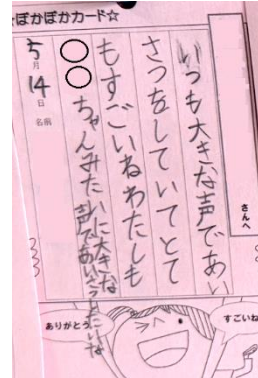 ぽかぽかカード☆
さんへ
いつも大きな声であい
さつをしていてとて
もすごいねわたしも
○○ちゃんみたいに大きな
声であいさつ
5月14日
名前
すごいね
ありがとう